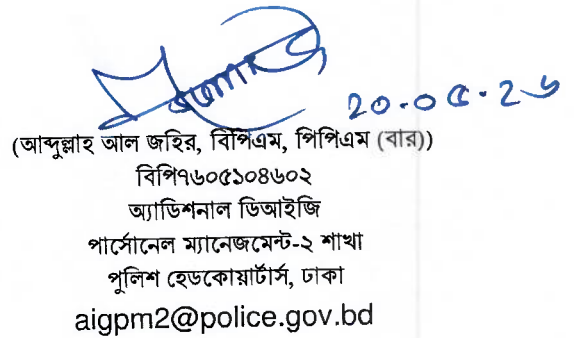 ২০.০৫.২৬
(আব্দুল্লাহ আল জহির, বিপিএম, পিপিএম (বার))
বিপি৭৬০৫১০৪৬০২
অ্যাডিশনাল ডিআইজি
পার্সোনেল ম্যানেজমেন্ট-২ শাখা
পুলিশ হেডকোয়ার্টার্স, ঢাকা
aigpm2@police.gov.bd